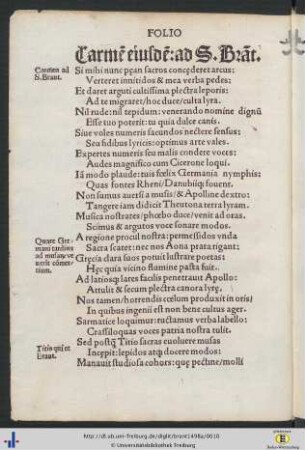 FOLIO
Carmē eiusdē: ad S. Brāt.
Carmen ad
S. Brant.
Si mihi nunc pęan sacros concederet arcus:
Verteret innitidos & mea verba pedes:
Et daret arguti cultissima plectra leporis:
Ad te migraret/hoc duce/culta lyra.
Nil rude: nil tepidum: venerando nomine dignū
Esse tuo poterit: tu quia dulce canis.
Siue voles numeris facundos nectere sensus:
Sea fidibus lyricis: optimus arte vales.
Expertes numeris seu malis condere voces:
Audes magnifico cum Cicerone loqui.
Iā modo plaude: tuis fœlix Germania nymphis:
Quas fontes Rheni/Danubiiq; fouent.
Non sumus auersi a musis/& Apolline dextro:
Tangere iam didicit Theutona terra lyram.
Musica nostrates/phœbo duce/venit ad oras.
Scimus & argutos voce sonare modos.
Quare Ger
mani tardius
ad musas/ve
nerīt cōmer-
tium.
A regione procul nostra: permessidos vnda
Sacra scatet: nec nos Aonia prata rigant:
Gręcia clara suos potuit lustrare poetas:
Hęc quia vicino flumine pasta fuit.
Ad latiosq; lares facilis penetrauit Apollo:
Attulit & secum plectra canora lyrę.
Nos tamen/horrendis cœlum produxit in oris/
In quibus ingenii est non bene cultus ager.
Sarmatice loquimur: ructamus verba labello:
Crassiloquas voces patria nostra tulit.
Titio qui et
Erato.
Sed postq̄ Titio sacras euoluere musas
Incępit: lepidos atq; docere modos:
Manauit studiosa cohors: quę pectine/molli
http://dl.ub.uni-freiburg.de/diglit/brant1498a/0010
© Universitätsbibliothek Freiburg